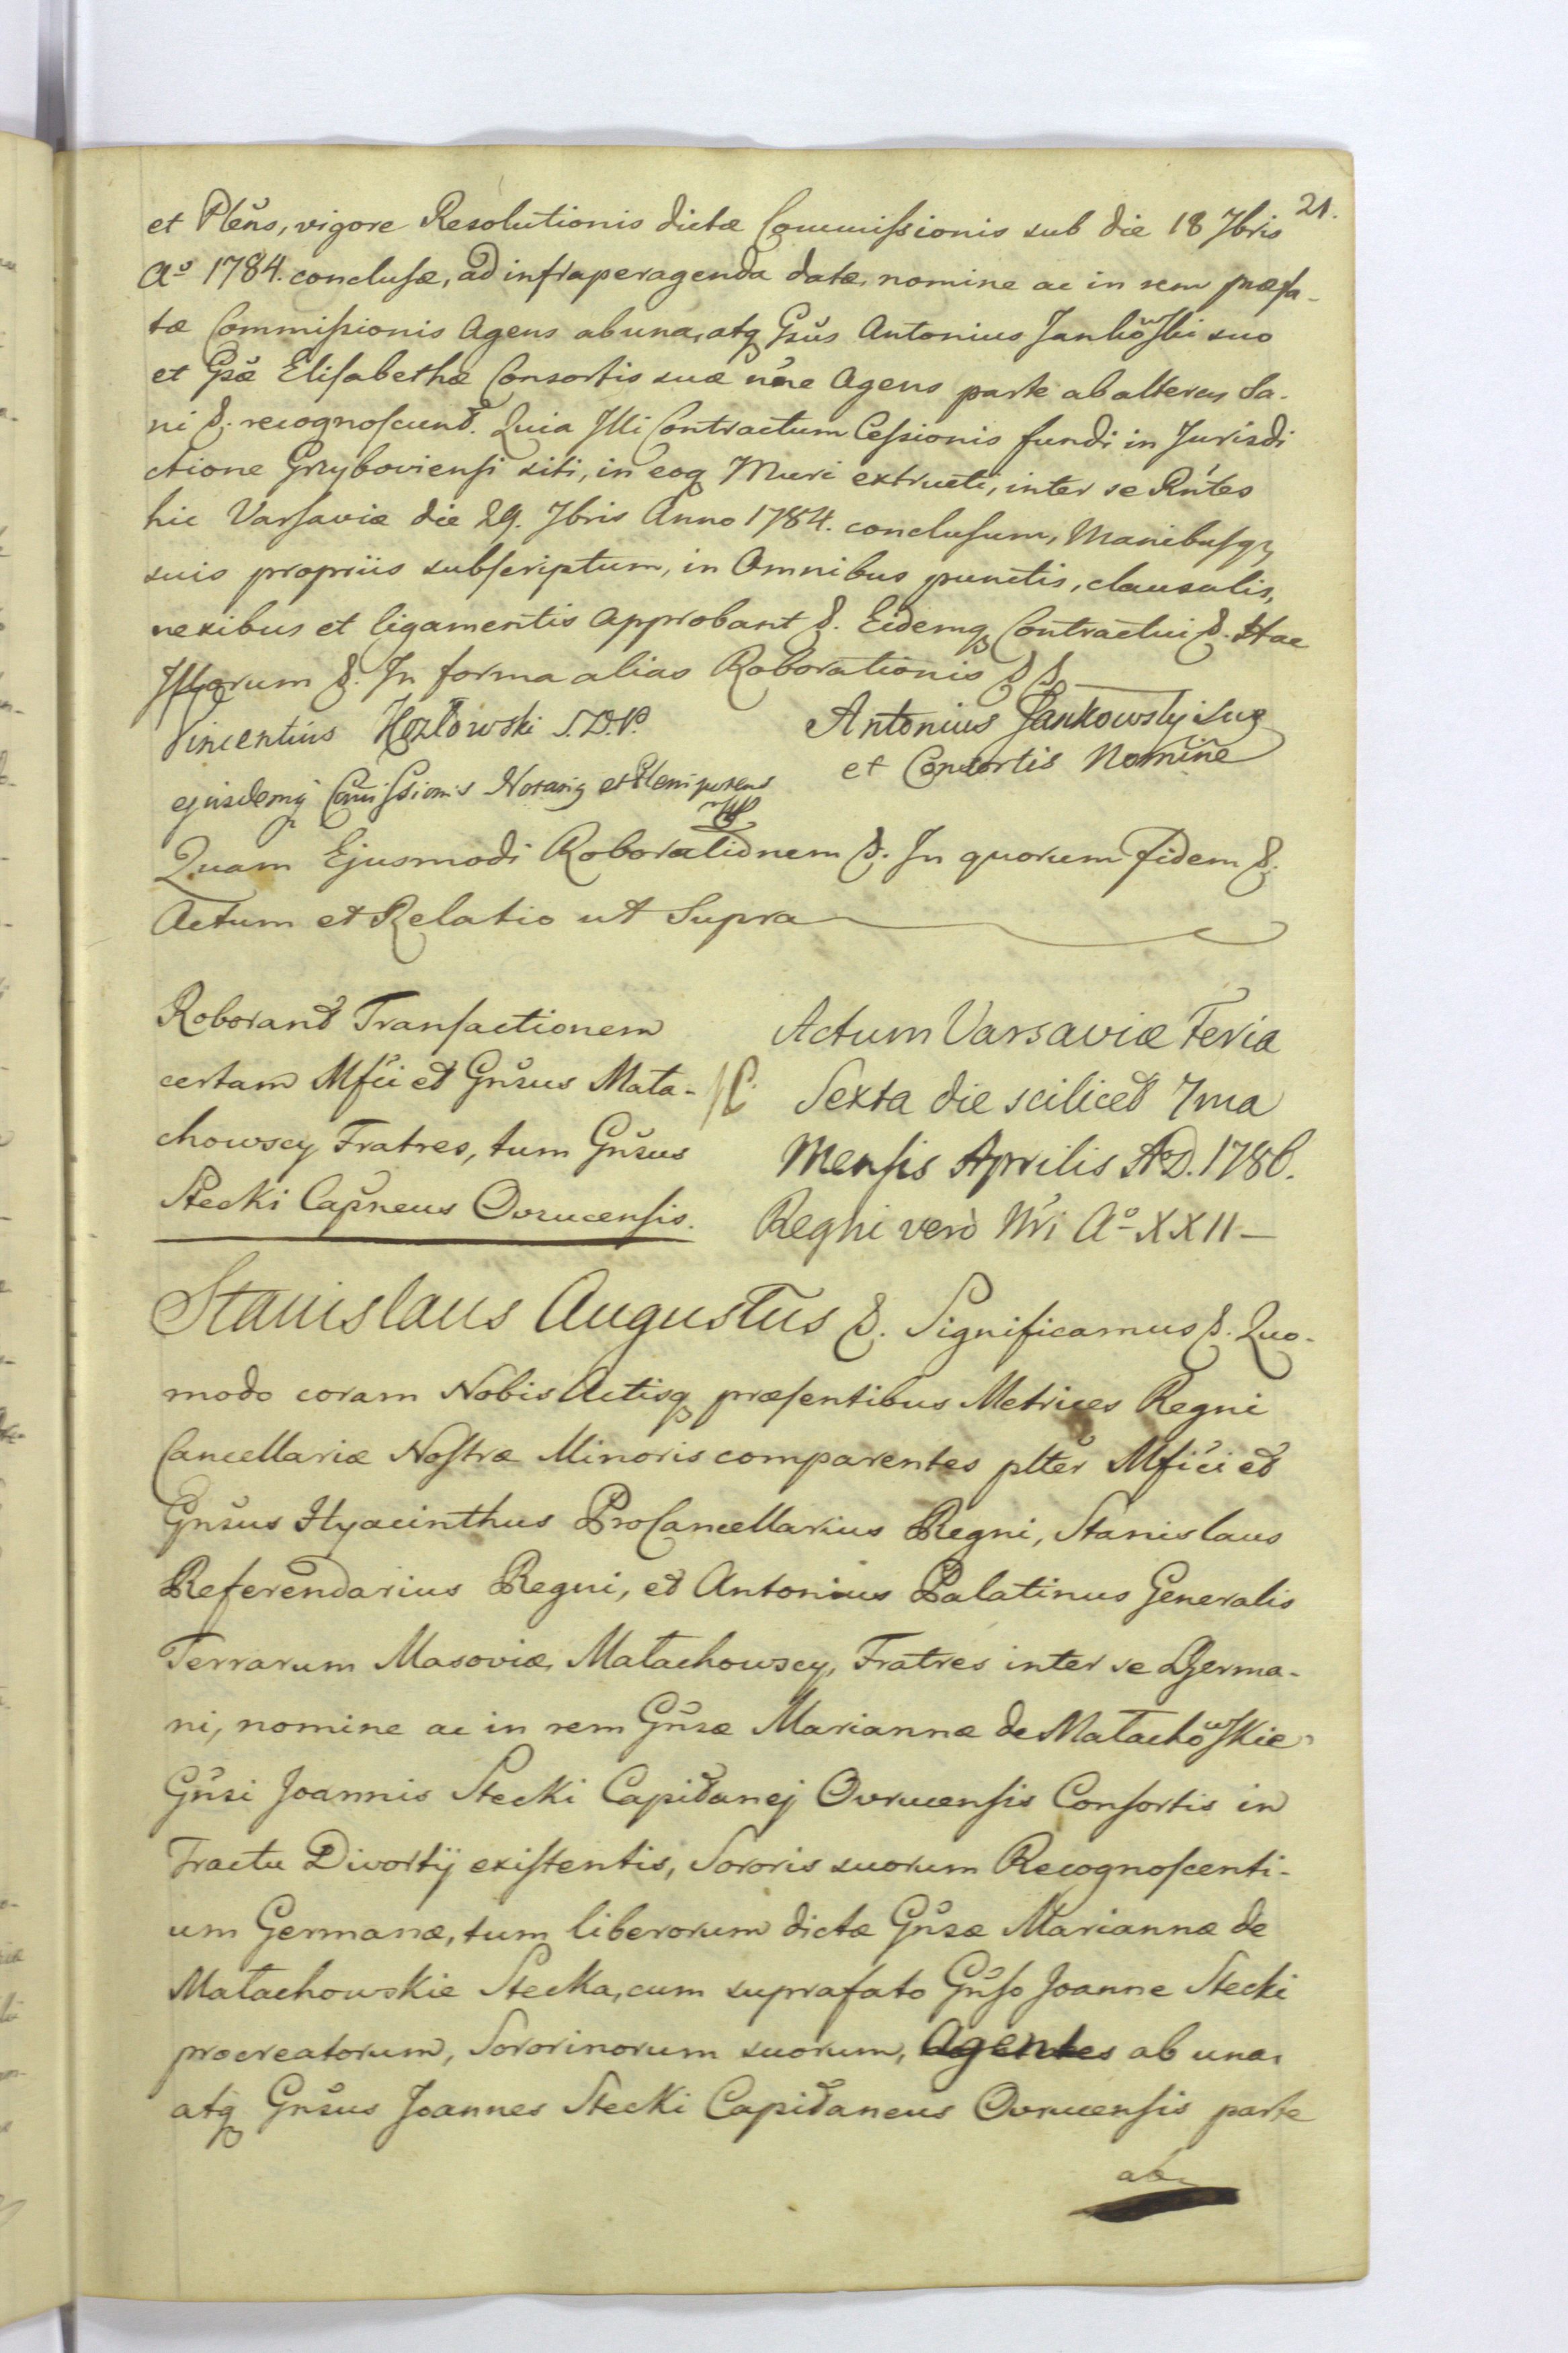 21.
et Pleñs, vigore Resolutionis dictæ Commiſsionis sub die 18 7bris
Aº 1784. concluſæ, ad infraperagenda datæ, nomine ac in rem præfa-
tæ Commiſsionis Agens ab una, atq Gsŭs Antonius Jankowſki suo
et Gsæ Eliſabethæ Consortis suæ nñe Agens parte ab altera, Sa-
ni &. recognoſcunt. Quia Illi Contractum Ceſsionis fundi in Jurisdi
ctione Grzyboviensi siti, in eoq Muri extructi, inter se Rñtes
hic Varſaviæ die 29. 7bris Anno 1784. concluſum, Manibuſq
suis propriis subſcriptum, in Omnibus punctis, clausulis,
nexibus et ligamentis approbant &. Eidemq Contractui &. Hac
Illorum &. In forma alias Roborationis &&
Vincentius Kozłowski S.D.N.
ejusdemq Com̃iſsionis Notariq et Plenipotens
Antonius Jankowsky Suo
et Consortis Nomine
Quam Ejusmodi Roborationem &. In quorum fidem &.
Actum et Relatio ut Supra
Roborant Tranſactionem
certam Mfici et Gnsus Mała-
chowscy Fratres, tum Gnsus
Stecki Capneus Ovrucenſis.
Actum Varsaviæ Feria
Sexta die scilicet 7ma
Menſis Aprilis A.D. 1786.
Regni verò Nri Aº XXII
Stanislaus Augustus &. Significamus &. Quo-
modo coram Nobis Actisq præſentibus Metrices Regni
Cancellariæ Noſtræ Minoris comparentes plter Mfici et
Gnsus Hyacinthus ProCancellarius Regni, Stanislaus
Referendarius Regni, et Antonius Palatinus Generalis
Terrarum Masoviæ, Małachowscy, Fratres inter se Germa-
ni, nomine ac in rem Gnsæ Mariannæ de Małachowſkie
Gnsi Joannis Stecki Capitanej Ovrucenſis Conſortis in
Tractu Divortij exiſtentis, Sororis suorum Recognoſcenti-
um Germanæ, tum liberorum dictæ Gnsæ Mariannæ de
Małachowskie Stecka, cum suprafato Gnſo Joanne Stecki
procreatorum, Sororinorum suorum, Agentes ab una,
atq Gnsus Joannes Stecki Capitaneus Ovrucenſis parte
ab